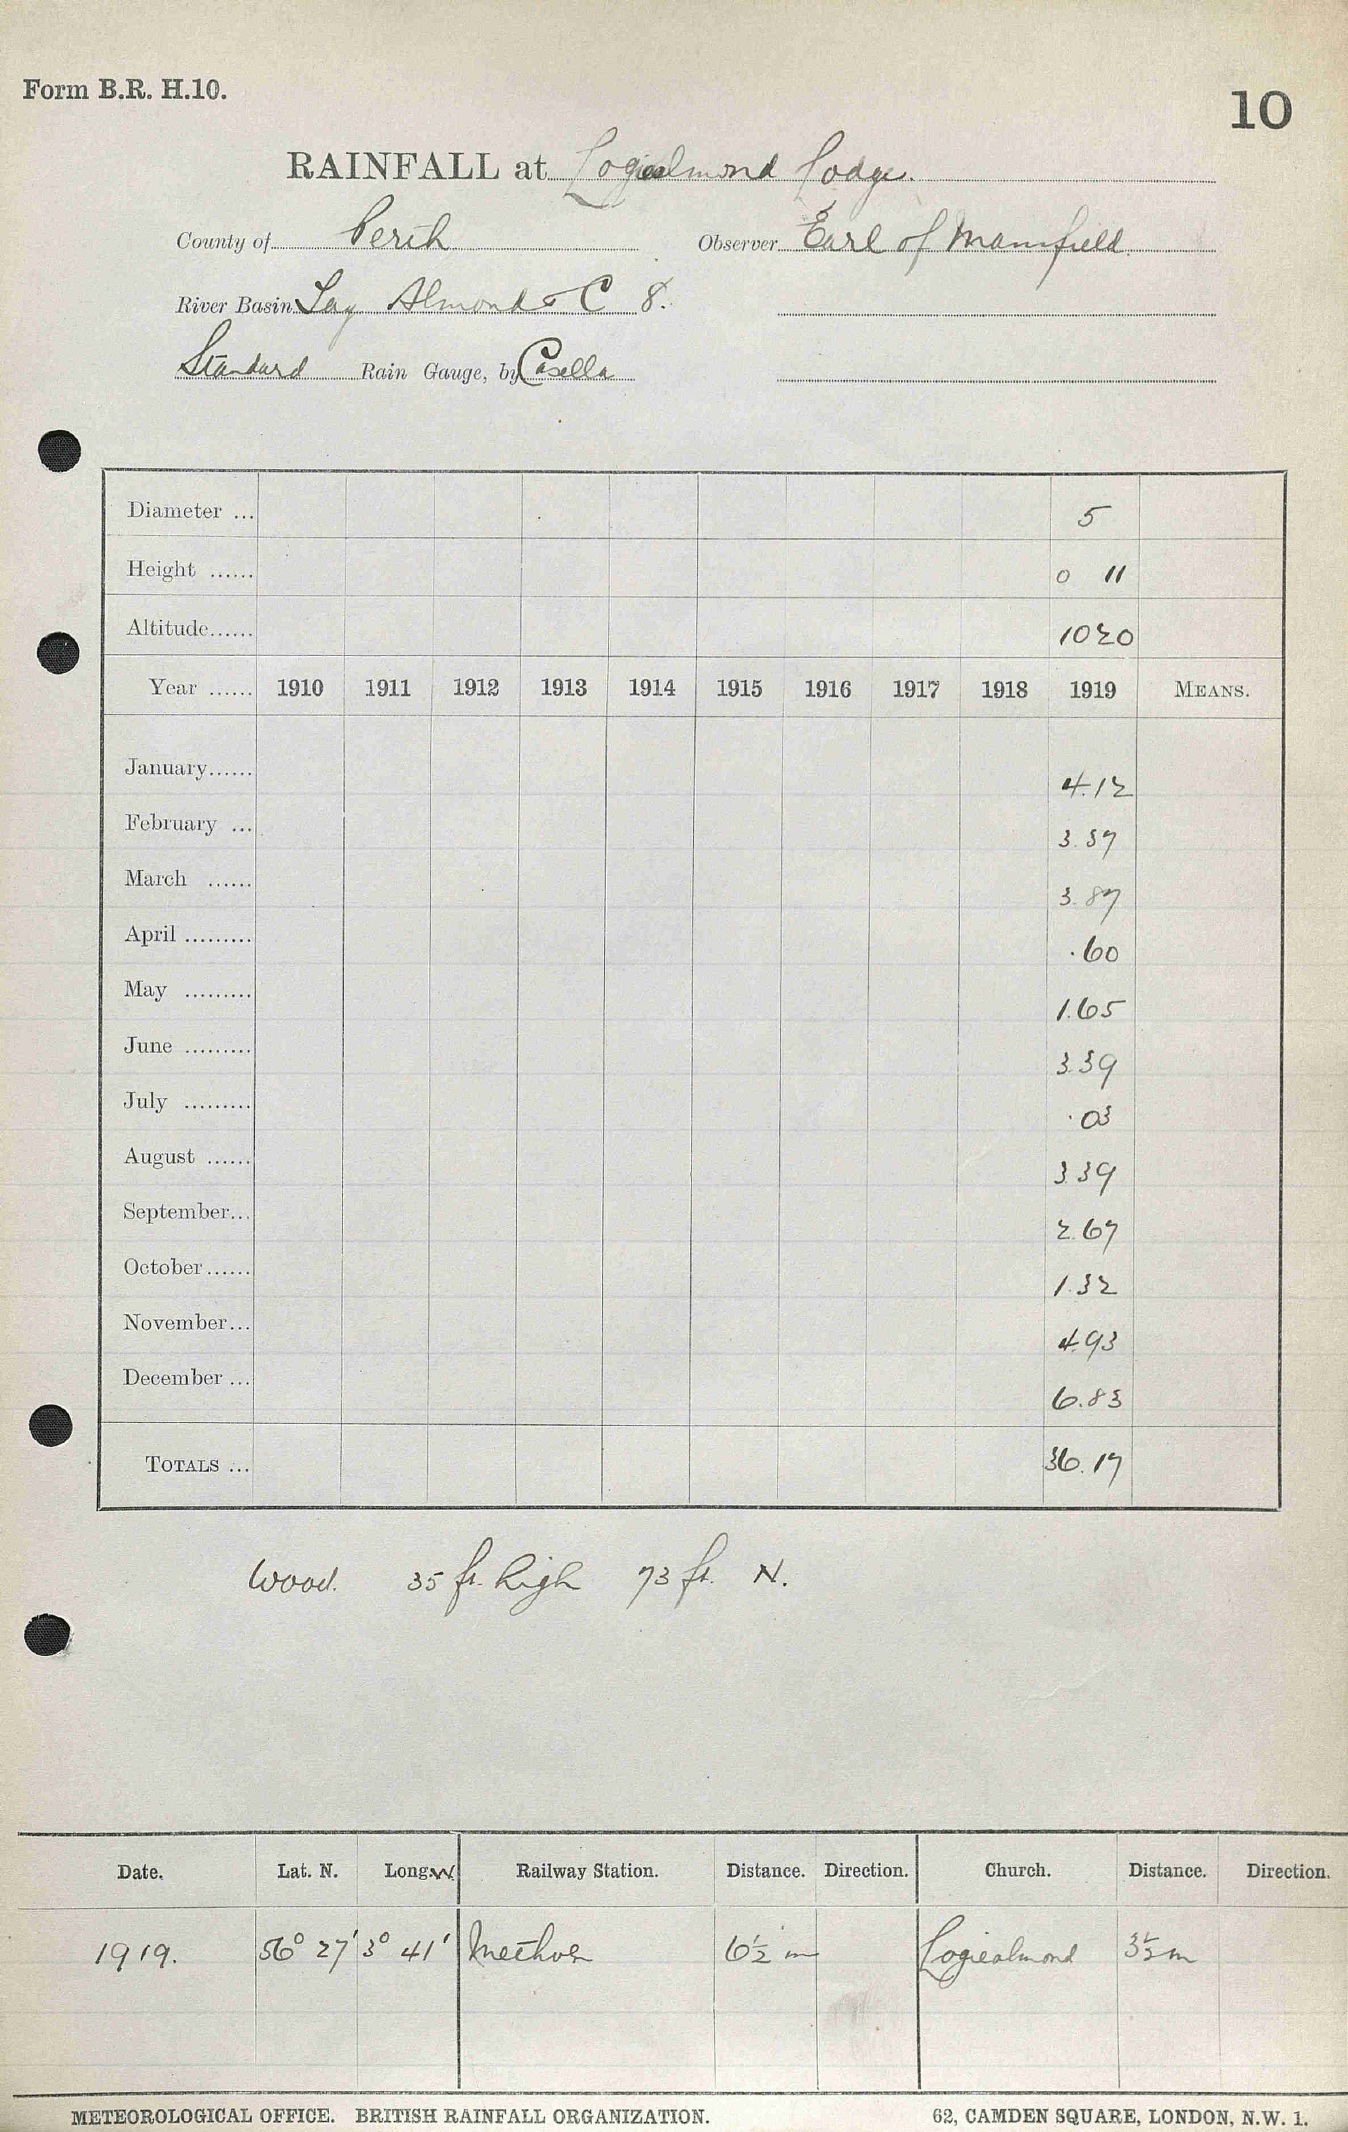 Form B.R. H.10.
10
RAINFALL at Logiealmond Lodge.
County of Perth Observer Earl of Mansfield
River Basin Tay Almond & C 8.
Standard Rain Gauge, by Casella
Diameter ... 5
Height ...... 0 11
Altitude...... 1020
Year ...... 1910 1911 1912 1913 1914 1915 1916 1917 1918 1919 MEANS.
January...... 4.12
February ... 3.37
March ...... 3.87
April ......... .60
May ......... 1.65
June ......... 3.39
July ......... .03
August ...... 3.39
September... 2.67
October...... 1.32
November... 4.93
December ... 6.83
TOTALS ... 36.17
Wood. 35 ft. high 73 ft. N.
Date. Lat. N. Long. W Railway Station. Distance. Direction. Church. Distance. Direction.
1919. 56° 27' 3° 41' Methven 6½ m Logiealmond 3½ m
METEOROLOGICAL OFFICE. BRITISH RAINFALL ORGANIZATION. 62, CAMDEN SQUARE, LONDON, N.W. 1.